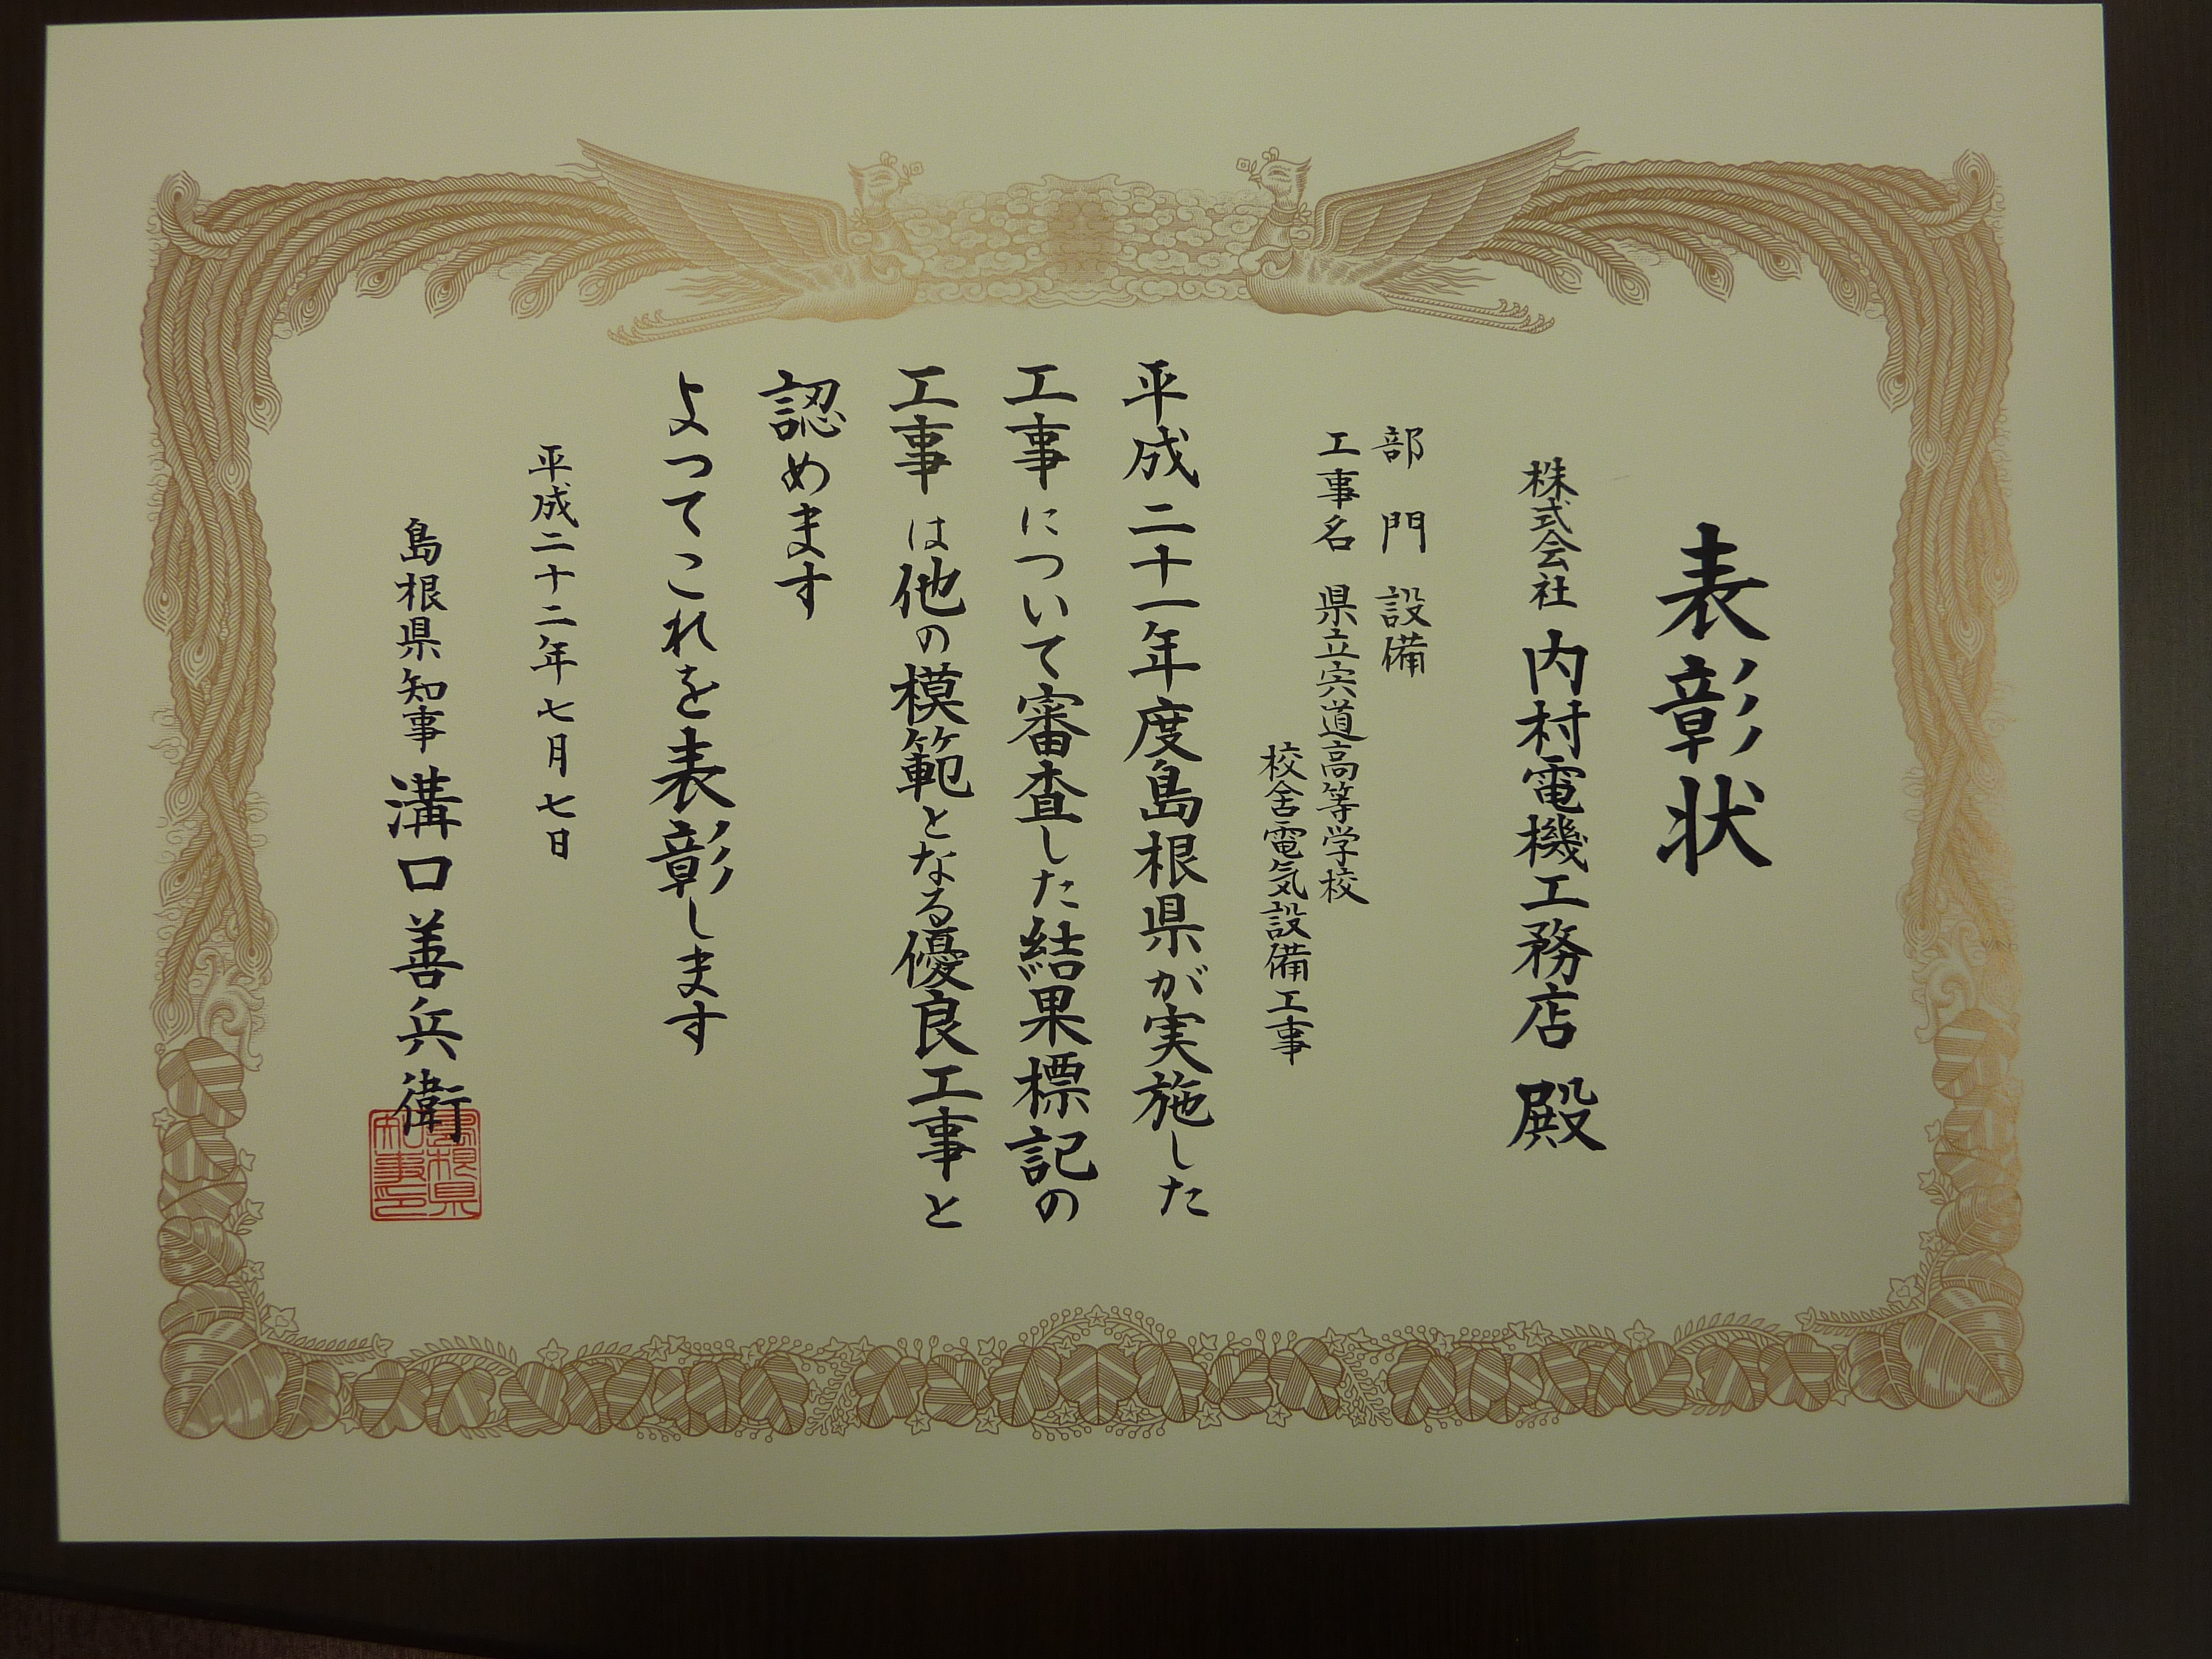 表彰状
株式会社 内村電機工務店 殿
部門 設備
工事名 県立宍道高等学校
校舎電気設備工事
平成二十一年度島根県が実施した
工事について審査した結果標記の
工事は他の模範となる優良工事と
認めます
よつてこれを表彰します
平成二十二年七月七日
島根県知事 溝口善兵衛
島根県
知事印